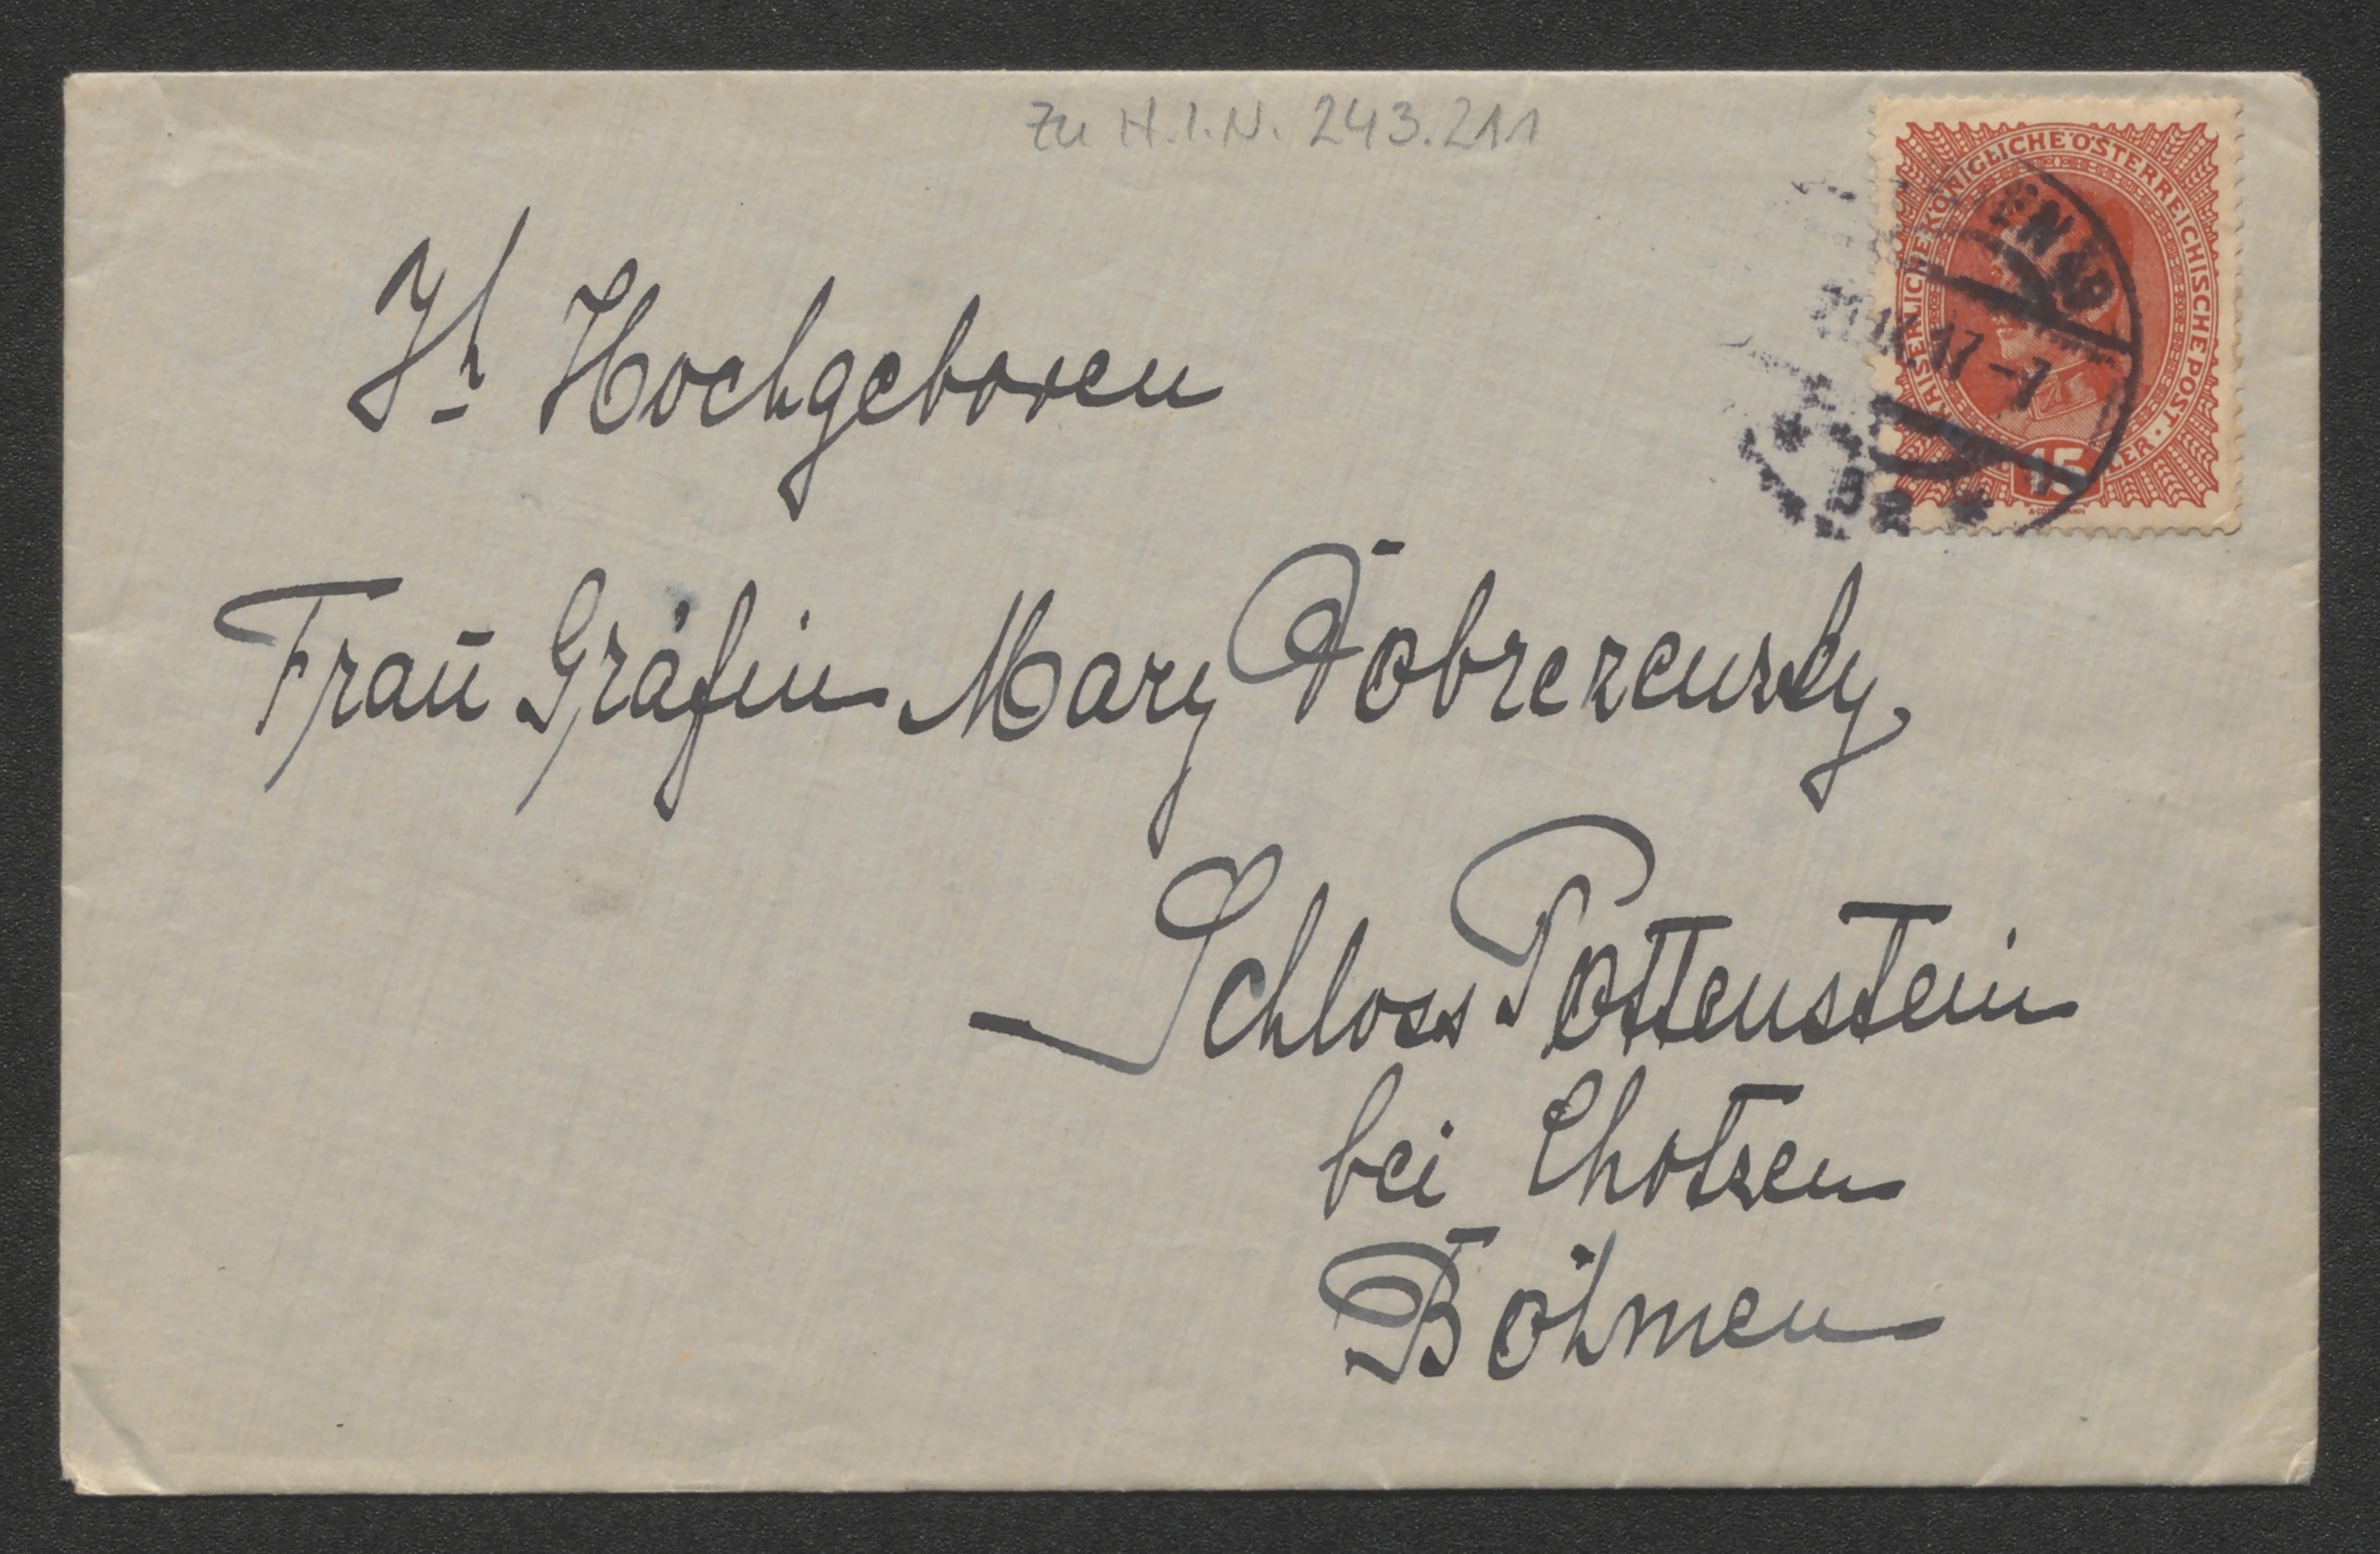 Zu H.I.N. 243.211
KAISERLICHE KÖNIGLICHE ÖSTERREICHISCHE POST
15
17 - 1
Ih Hochgeboren
Frau Gräfin Mary Dobrzensky
Schloss Pottenstein
bei Chotzen
Böhmen